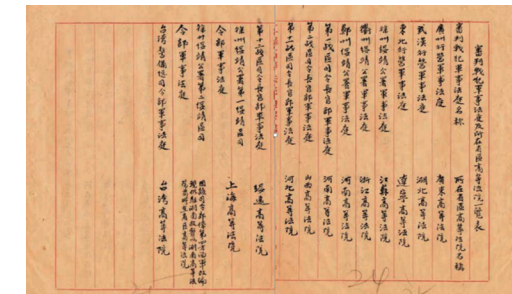 審判戰犯軍事法庭及所在省區高等法院一覽表
審判戰犯軍事法庭名稱 所在省區高等法院名稱
廣州行營軍事法庭 廣東高等法院
武漢行營軍事法庭 湖北高等法院
東北行營軍事法庭 遼寧高等法院
徐州綏靖公署軍事法庭 江蘇高等法院
衢州綏靖公署軍事法庭 浙江高等法院
鄭州綏靖公署軍事法庭 河南高等法院
第一戰區司令長官部軍事法庭 河南高等法院
第二戰區司令長官部軍事法庭 山西高等法院
第十一戰區司令長官部軍事法庭 河北高等法院
第十二戰區司令長官部軍事法庭 綏遠高等法院
徐州綏靖公署第一綏靖區司
令部軍事法庭 上海高等法院
徐州綏靖公署第二綏靖區司
令部軍事法庭
台灣警備總司令部軍事法庭 台灣高等法院
24